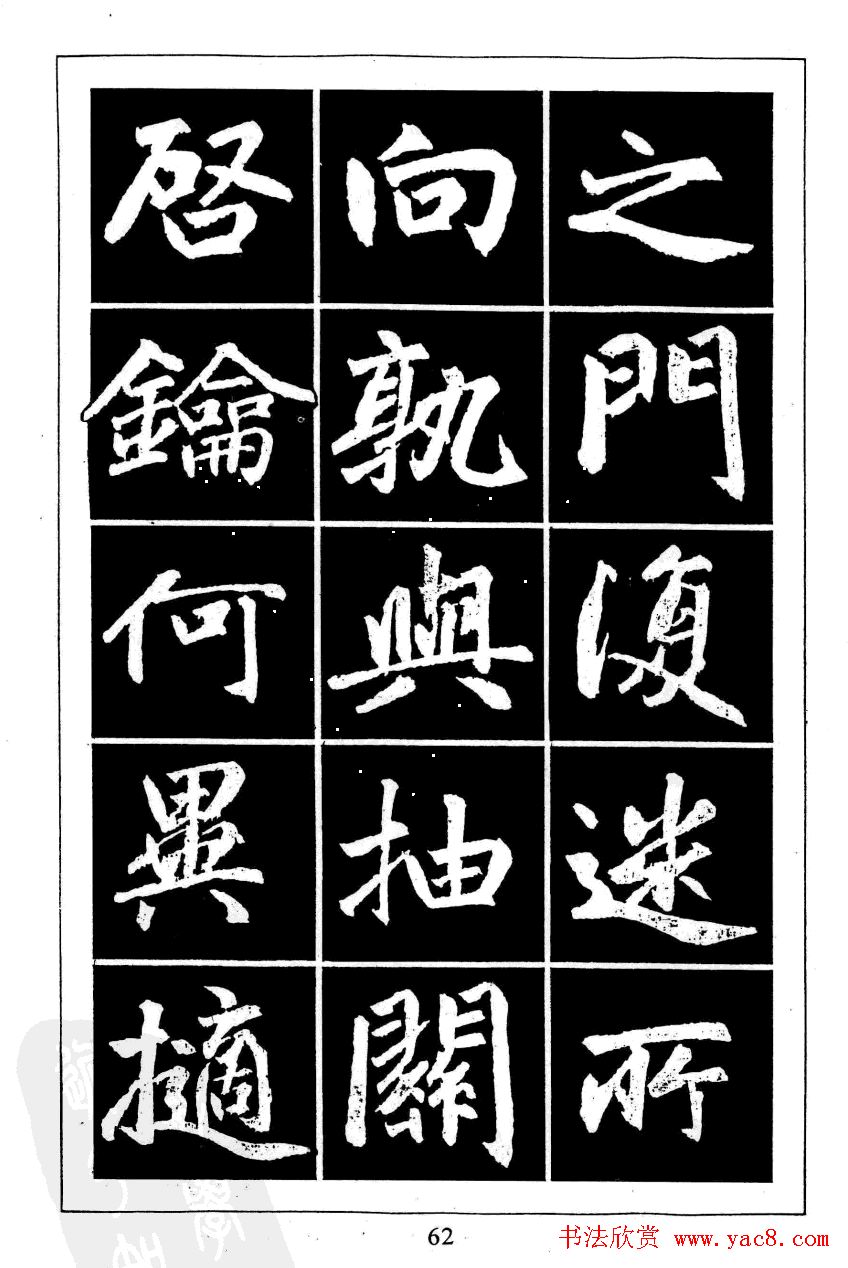 之門復迷所
向孰與抽關
啓鑰何異擿
62
书法欣赏 www.yac8.com